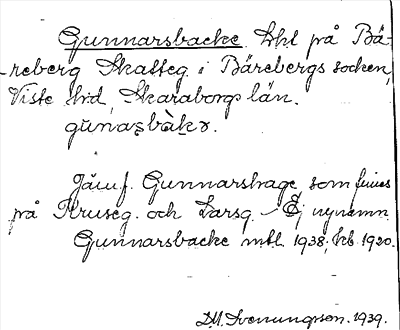 Gunnarsbacke Lht på Bä-
reberg Skatteg. i Bärebergs socken,
Viste hd, Skaraborgs län.
gŭnaʂbàkɤ.
Jämf. Gunnarshage, som finnes
på Kruseg. och Larsg. – Ej nynamn
Gunnarsbacke mtl. 1938, kb. 1920.
D.M. Svenungsson. 1939.